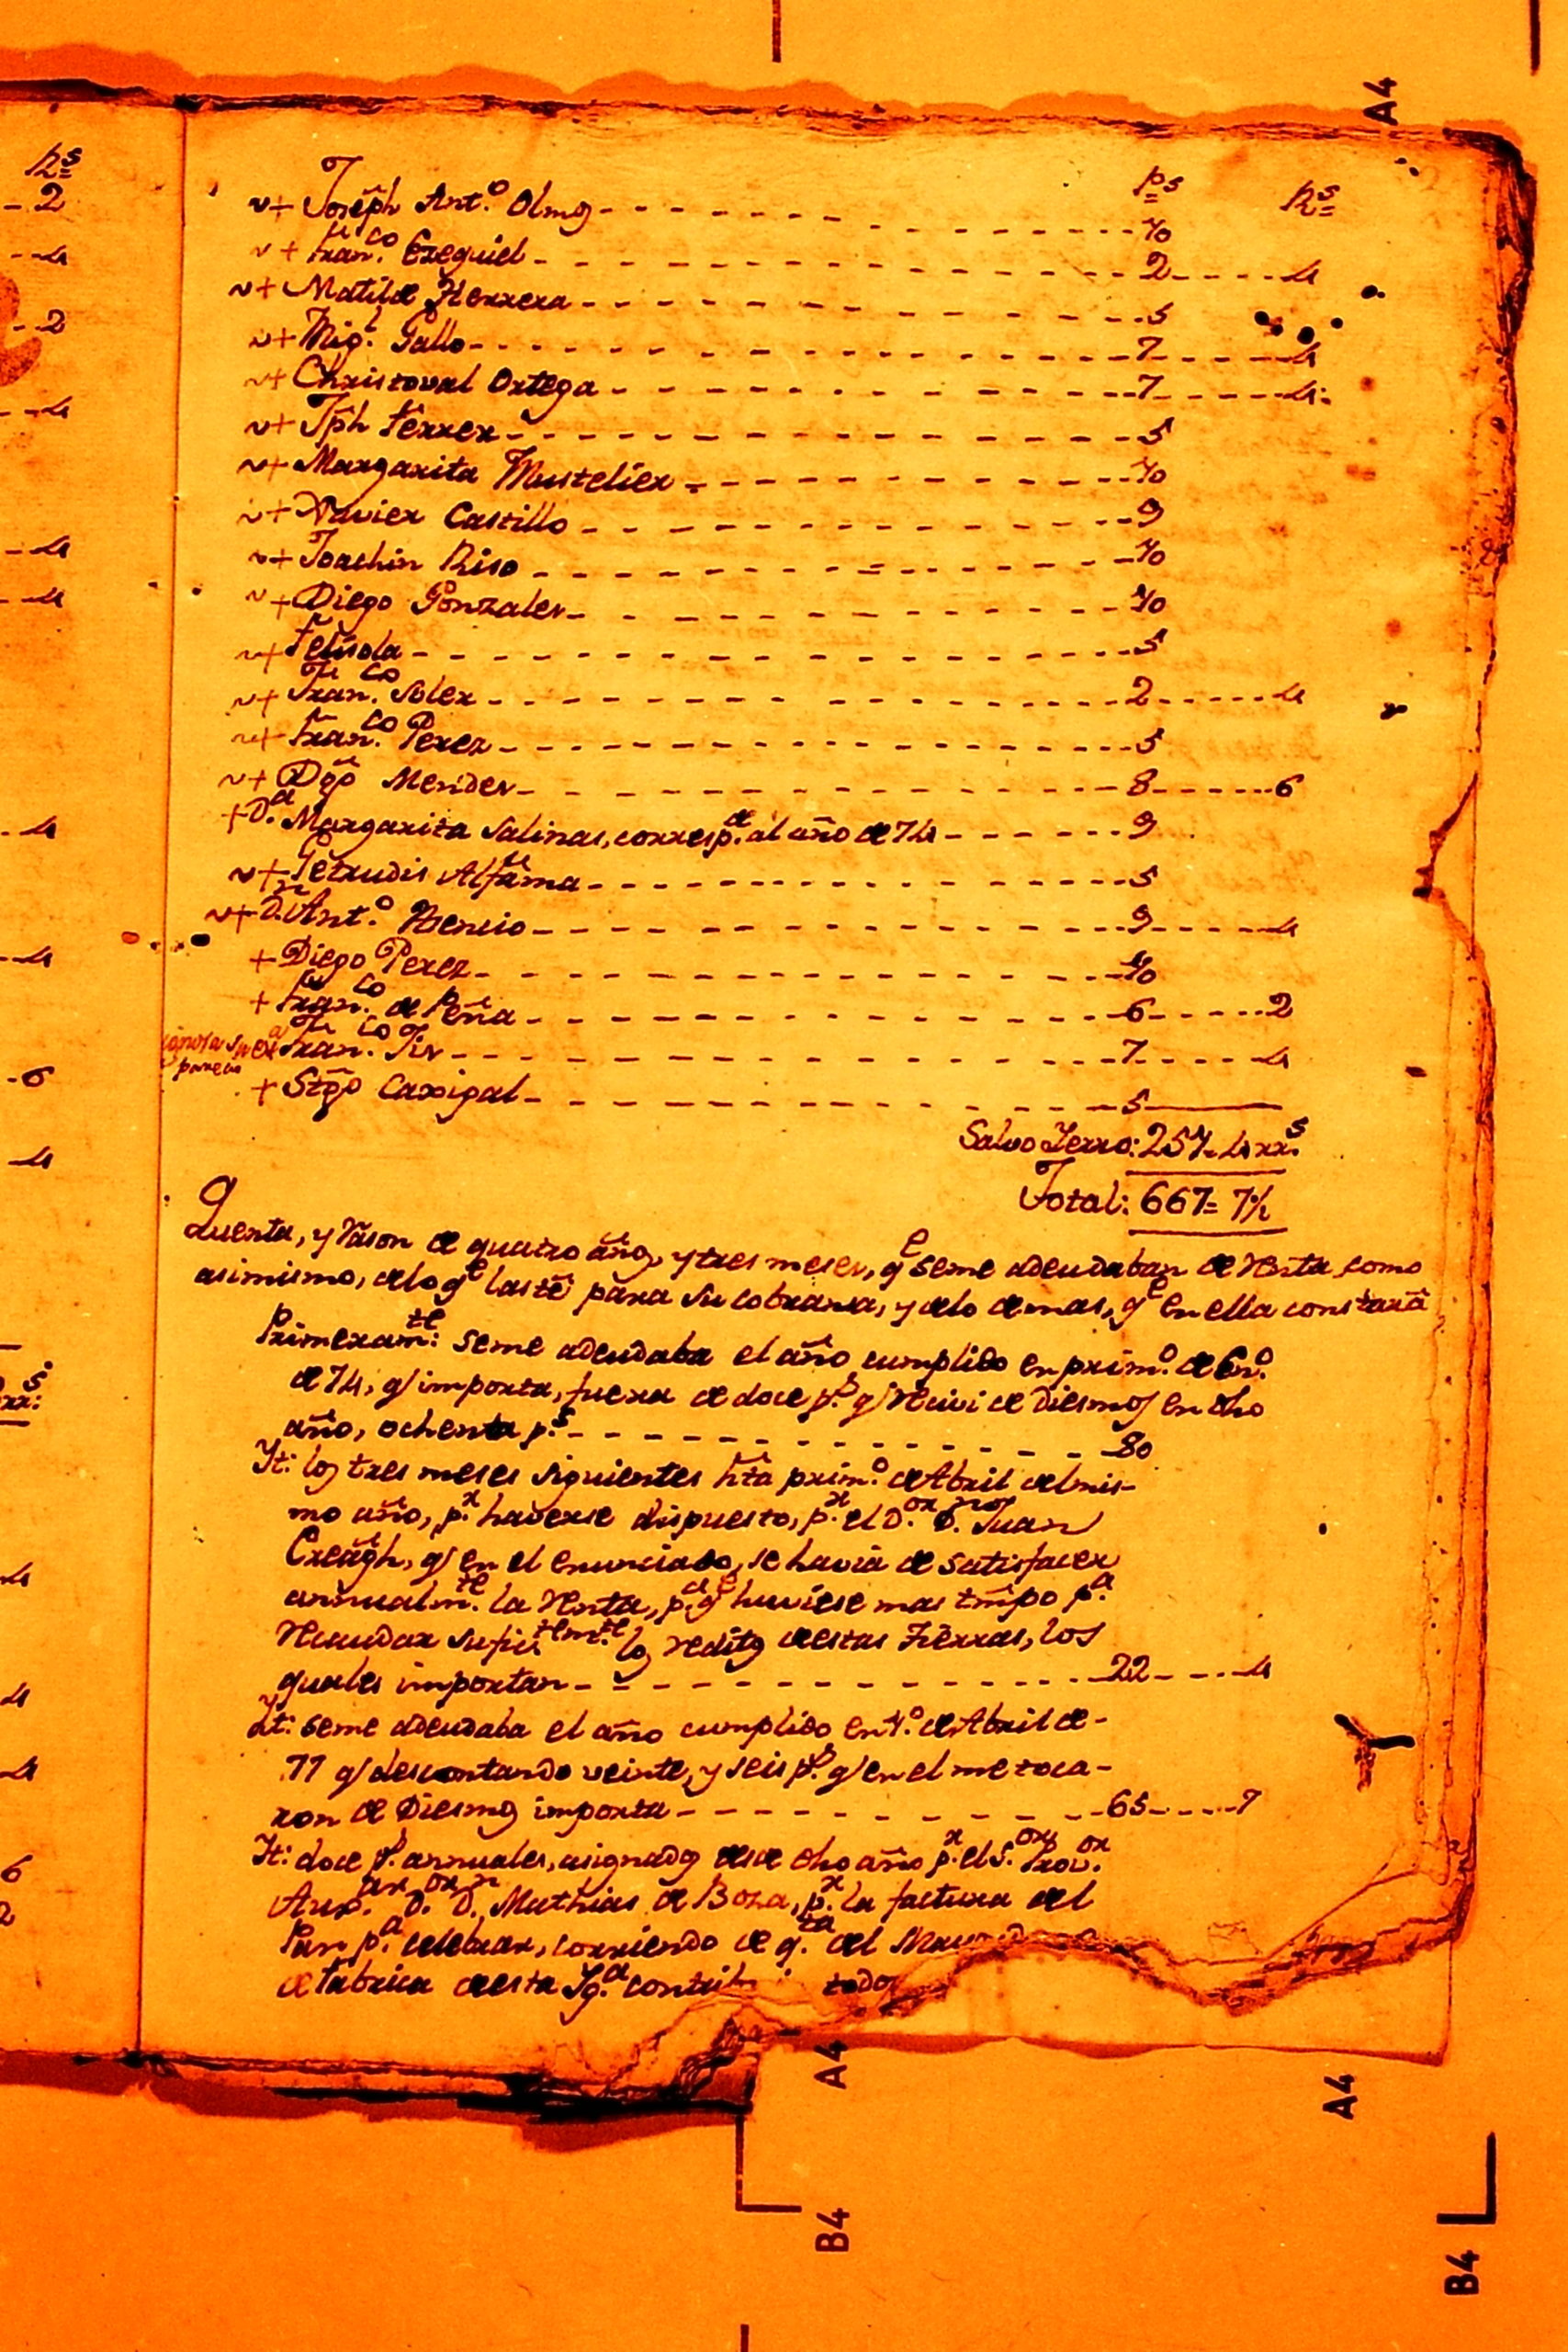 ps rs
v+ Joseph Ant.o Olmos 10
v+ Fran.co Ezequiel 2 4
v+ Matilde Herrera 5
v+ Mig.l Gallo 7 4
v+ Christoval Ortega 7 4
v+ Jph Ferrer 5
v+ Margarita Mustelier 10
v+ Xavier Castillo 9
v+ Joachin Riso 10
v+ Diego Gonzales 10
v+ Felisola 5
v+ Fran.co Soler 2 4
v+ Fran.co Perez 5
v+ Dgo Mendes 8 6
+ D.a Margarita Salinas, corresp.de al año de 74 9
v+ Getrudis Alfama 5
v+ D.n Ant.o Asencio 9 4
+ Diego Perez 10
+ Fran.co de Peña 6 2
Fran.co 7 4
+ Stgo Carvigal 5
Salvo Yerro: 257= 4 rr.s
Total: 667= 7½
Quenta, y Rason de quatro años, y tres meses, qe seme adeudaban de Renta, como
asimismo, delo qe lasté para su cobransa, y delo demas, qe en ella constará
Primeram.te: seme adeudaba el año cumplido en prim.o de En.o
de 74, q/ importa, fuera de doce p.s q/ Recivi de Diesmos en dho
año, ochenta p.s 80
It: los tres meses siguientes hta prim.o de Abril del mis-
mo año, p.r haverse dispuesto, p.r el D.or D.n Juan
Creagh, q/ en el enunciado, se havia de satisfacer
annualm.te la Renta, p.a qe huviese mas tmpo p.a
Recaudar suficientem.te los reditos destas Tierras, los
quales importan 22 4
It: seme adeudaba el año cumplido en 1.o de Abril de-
77 q/ descontando veinte, y seis p.s q/ en el me toca-
ron de Diesmos importa 65 7
It: doce p.s annuales, asignados desde dho año p.r el S.or Prov.or
Aux.ar D.or D.n Mathias de Boza, p.r la factura del
Pan p.a celebrar, corriendo de q.ta del
de Fabrica desta Yg.a todos
2
4
2
4
4
4
4
4
6
4
4
4
4
6
2
A4
A4
A4
B4
B4